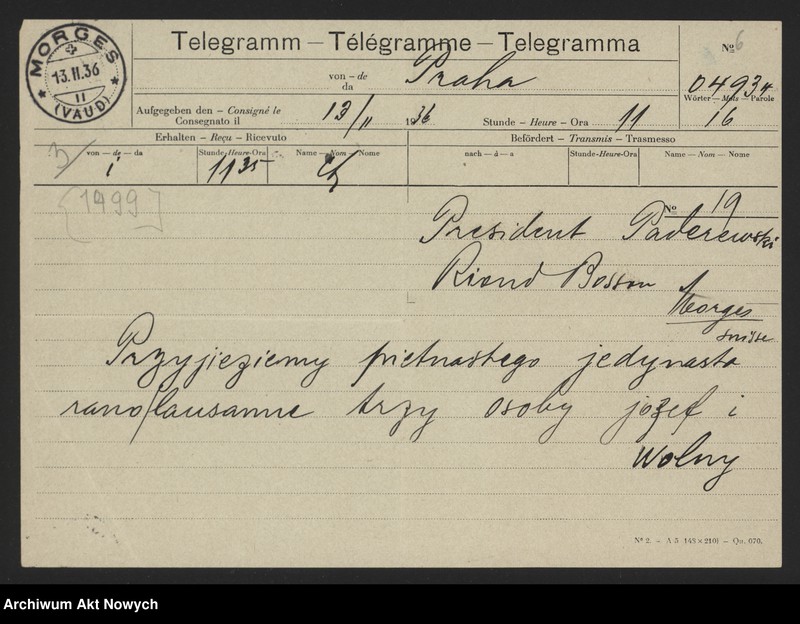 MORGES
13.II.36
11
(VAUD)
Telegramm — Télégramme — Telegramma
№ 6
von - de
da
Praha
04934
Wörter — Mots — Parole
16
Aufgegeben den - Consigné le
Consegnato il
13/II
1936
Stunde - Heure - Ora
11
Erhalten - Reçu - Ricevuto
Befördert - Transmis - Trasmesso
von - de - da
Stunde-Heure-Ora
Name - Nom - Nome
nach - à - a
Stunde-Heure-Ora
Name - Nom - Nome
i
11 35
[1999]
№ 19
President Paderewski
Riond Bosson
Morges
suisse
Przyjieziemy pietnastego jedynasta
rano/lausanne trzy osoby józef i
Wolny
№ 2. - A 5 (148×210) - Qu. 070.
Archiwum Akt Nowych